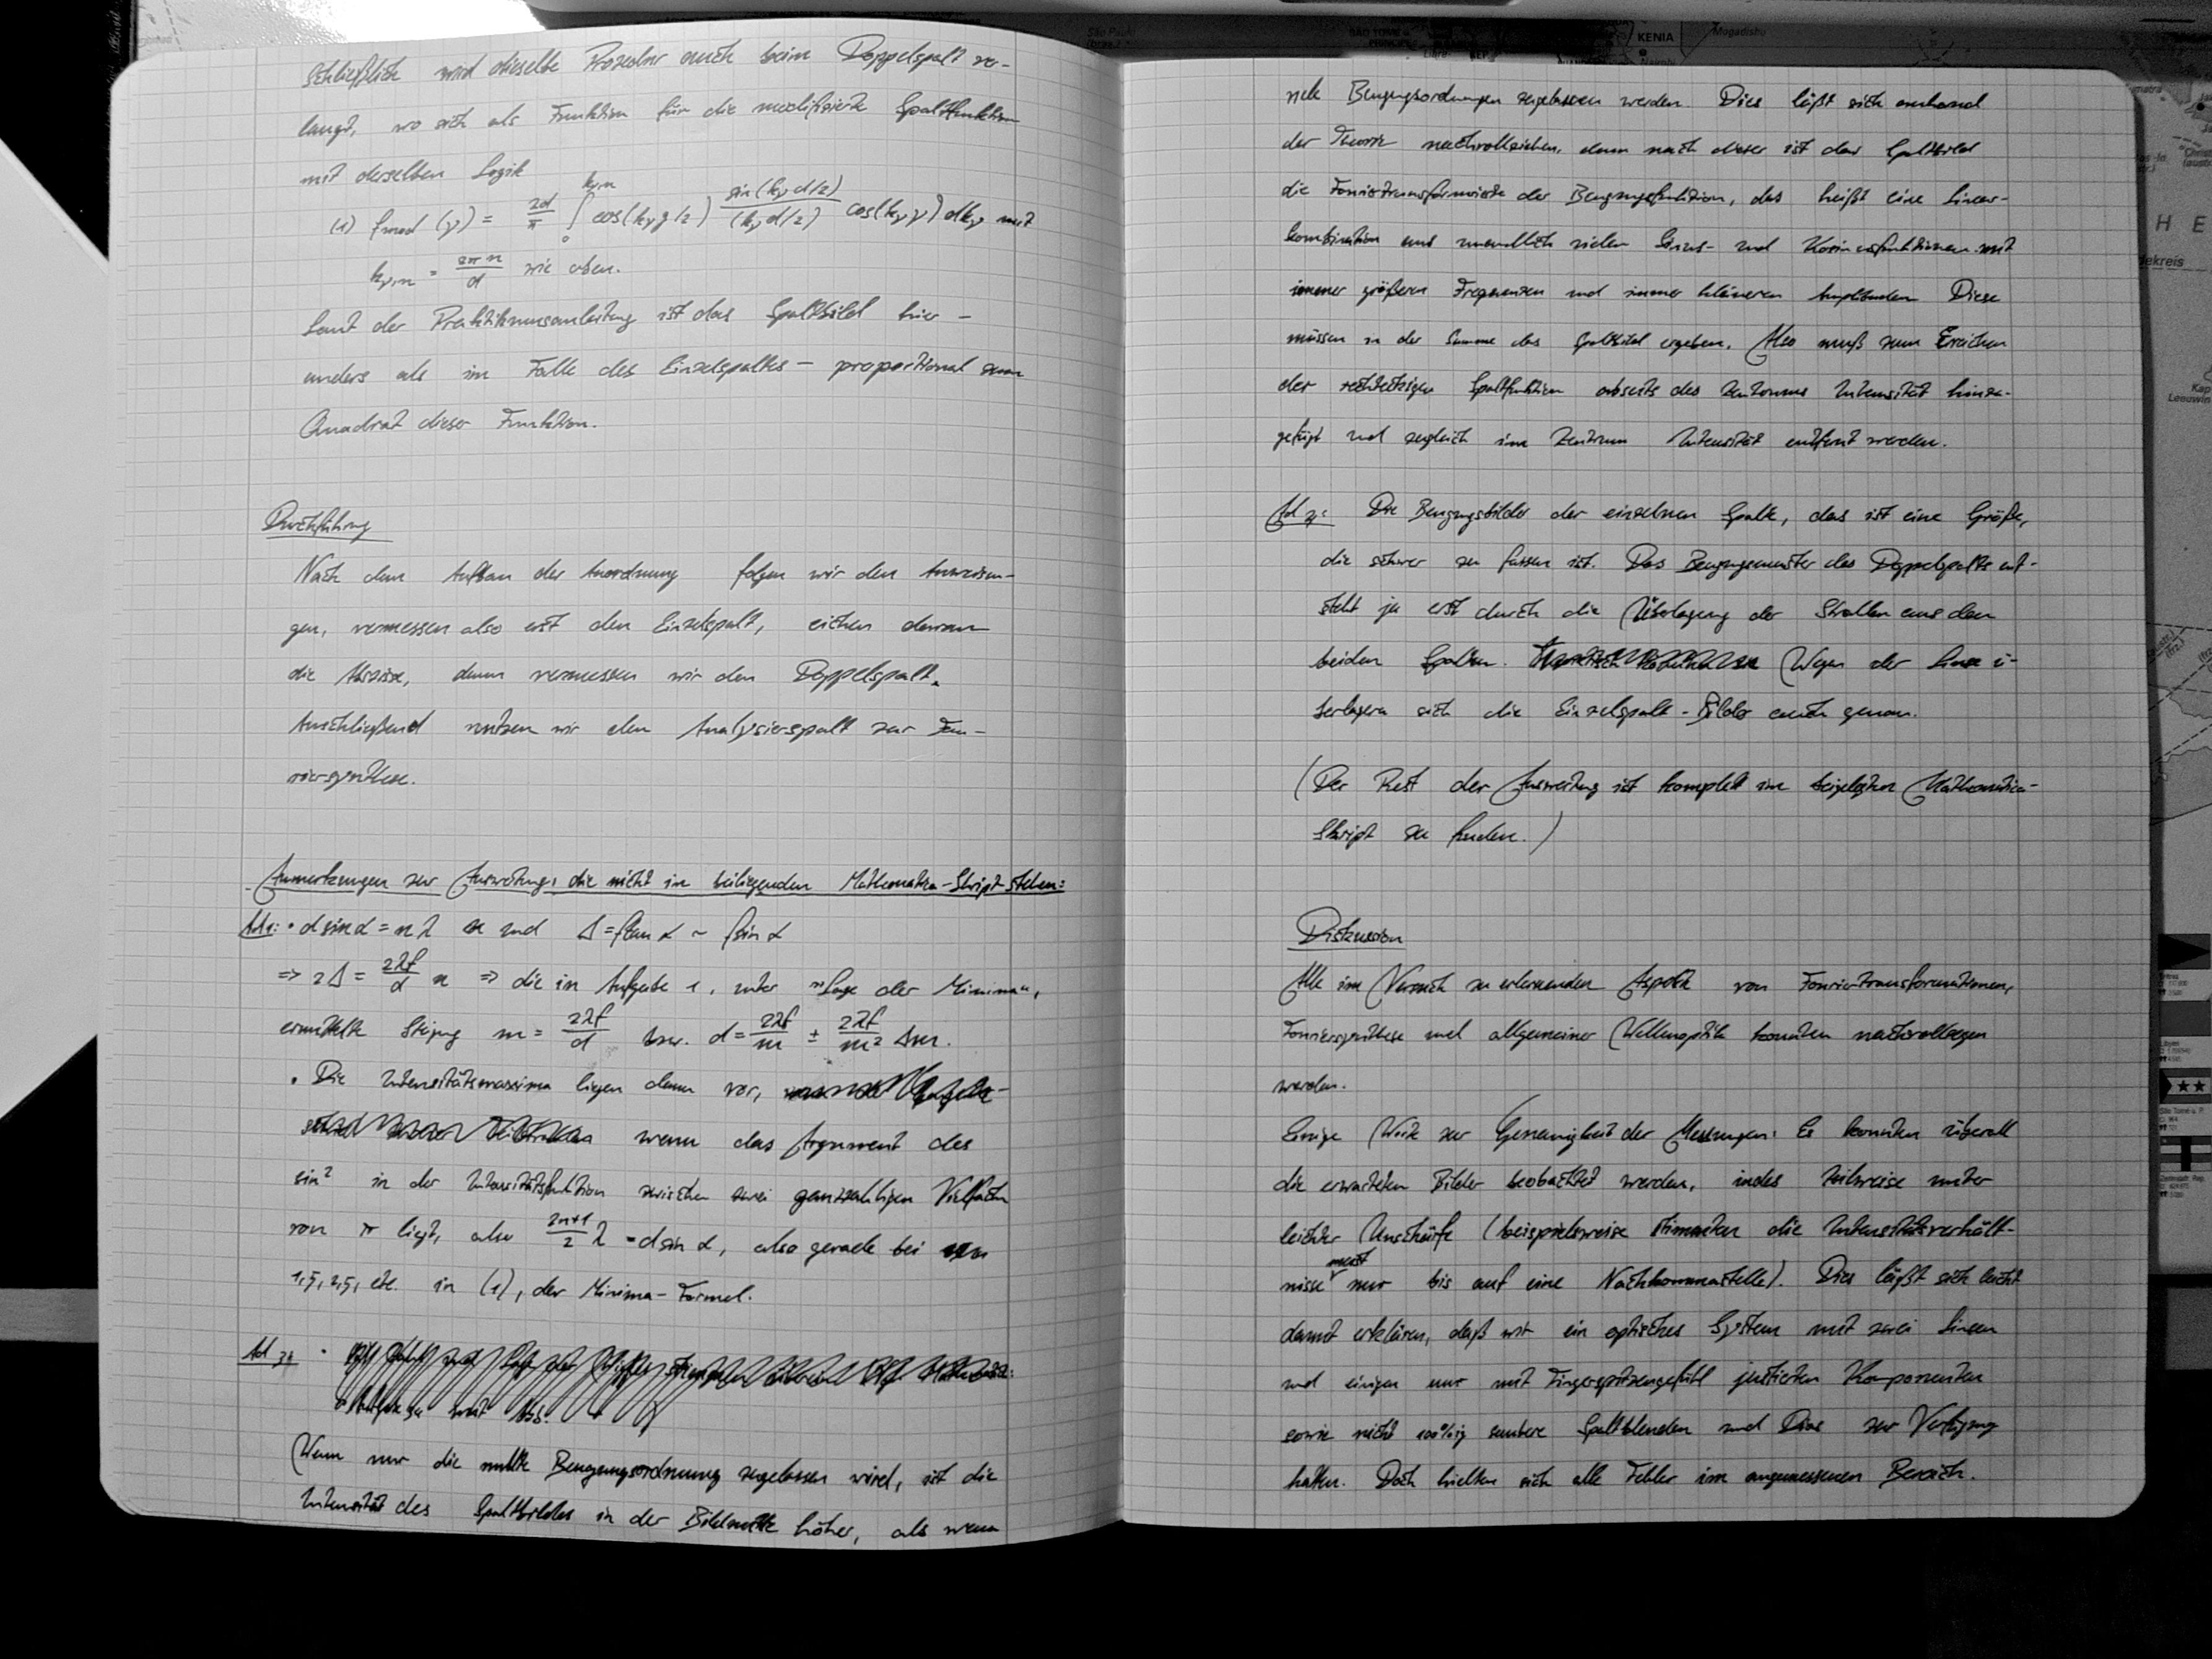 schließlich wird dieselbe Prozedur auch beim Doppelspalt ver-
langt, wo sich als Funktion für die modifizierte Spaltfunktion
mit derselben Logik
(1) f_mod (y) = 2d/π ∫₀^{k_yn} cos(k_y g/2) sin(k_y d/2)/(k_y d/2) cos(k_y y) dk_y mit
k_yn = 2πn/d wie oben.
Laut der Praktikumsanleitung ist das Spaltbild hier –
anders als im Falle des Einzelspaltes – proportional zum
Quadrat dieser Funktion.
Durchführung
Nach dem Aufbau der Anordnung folgen wir den Anweisun-
gen, vermessen also erst den Einzelspalt, eichen daran
die Abszisse, dann vermessen wir den Doppelspalt.
Anschließend nutzen wir den Analysierspalt zur Fou-
riersynthese.
Anmerkungen zur Auswertung, die nicht im beiliegenden Mathematica-Skript stehen:
Ad 1: • d sin α = n λ und Δ = f tan α ~ f sin α
=> 2Δ = 2λf/d n => die in Aufgabe 1, unter "Lage der Minima",
ermittelte Steigung m = 2λf/d bzw. d = 2λf/m ± 2λf/m² Δm.
• Die Intensitätsmaxima liegen dann vor,
wenn das Argument des
sin² in der Intensitätsfunktion zwischen zwei ganzzahligen Vielfachen
von π liegt, also 2n+1/2 λ = d sin α, also gerade bei n
1,5, 2,5, etc. in (1), der Minima-Formel.
Ad 3: •
Wenn nur die nullte Beugungsordnung zugelassen wird, ist die
Intensität des Spaltbildes in der Bildmitte höher, als wenn
viele Beugungsordnungen zugelassen werden. Dies läßt sich anhand
der Theorie nachvollziehen, denn nach dieser ist das Spaltbild
die Fouriertransformierte der Beugungsfunktion, das heißt eine Linear-
kombination aus unendlich vielen Sinus- und Kosinusfunktionen mit
immer größeren Frequenzen und immer kleineren Amplituden. Diese
müssen in der Summe das Spaltbild ergeben. Also muß zum Erreichen
der rechteckigen Spaltfunktion abseits des Zentrums Intensität hinzu-
gefügt und zugleich im Zentrum Intensität entfernt werden.
Die Beugungsbilder der einzelnen Spalte, das ist eine Größe,
die schwer zu fassen ist. Das Beugungsmuster des Doppelspalts ent-
steht ja erst durch die Überlagerung der Strahlen aus den
beiden Spalten. Wegen der Linse ü-
berlagern sich die Einzelspalt-Bilder auch genau.
(Der Rest der Auswertung ist komplett im beigelegten Mathematica-
Skript zu finden.)
Diskussion
Alle im Versuch zu erlernenden Aspekte von Fouriertransformationen,
Fouriersynthese und allgemeiner Wellenoptik konnten nachvollzogen
werden.
Einige Worte zur Genauigkeit der Messungen: Es konnten überall
die erwarteten Bilder beobachtet werden, indes teilweise unter
leichter Unschärfe (beispielsweise stimmten die Intensitätsverhält-
nisse meist nur bis auf eine Nachkommastelle). Dies läßt sich leicht
damit erklären, daß wir ein optisches System mit zwei Linsen
und einigen nur mit Fingerspitzengefühl justierten Komponenten
sowie nicht 100%ig saubere Spaltblenden und Dias zur Verfügung
hatten. Doch hielten sich alle Fehler im angemessenen Bereich.
KENIA
Mogadishu
São Paulo
H E